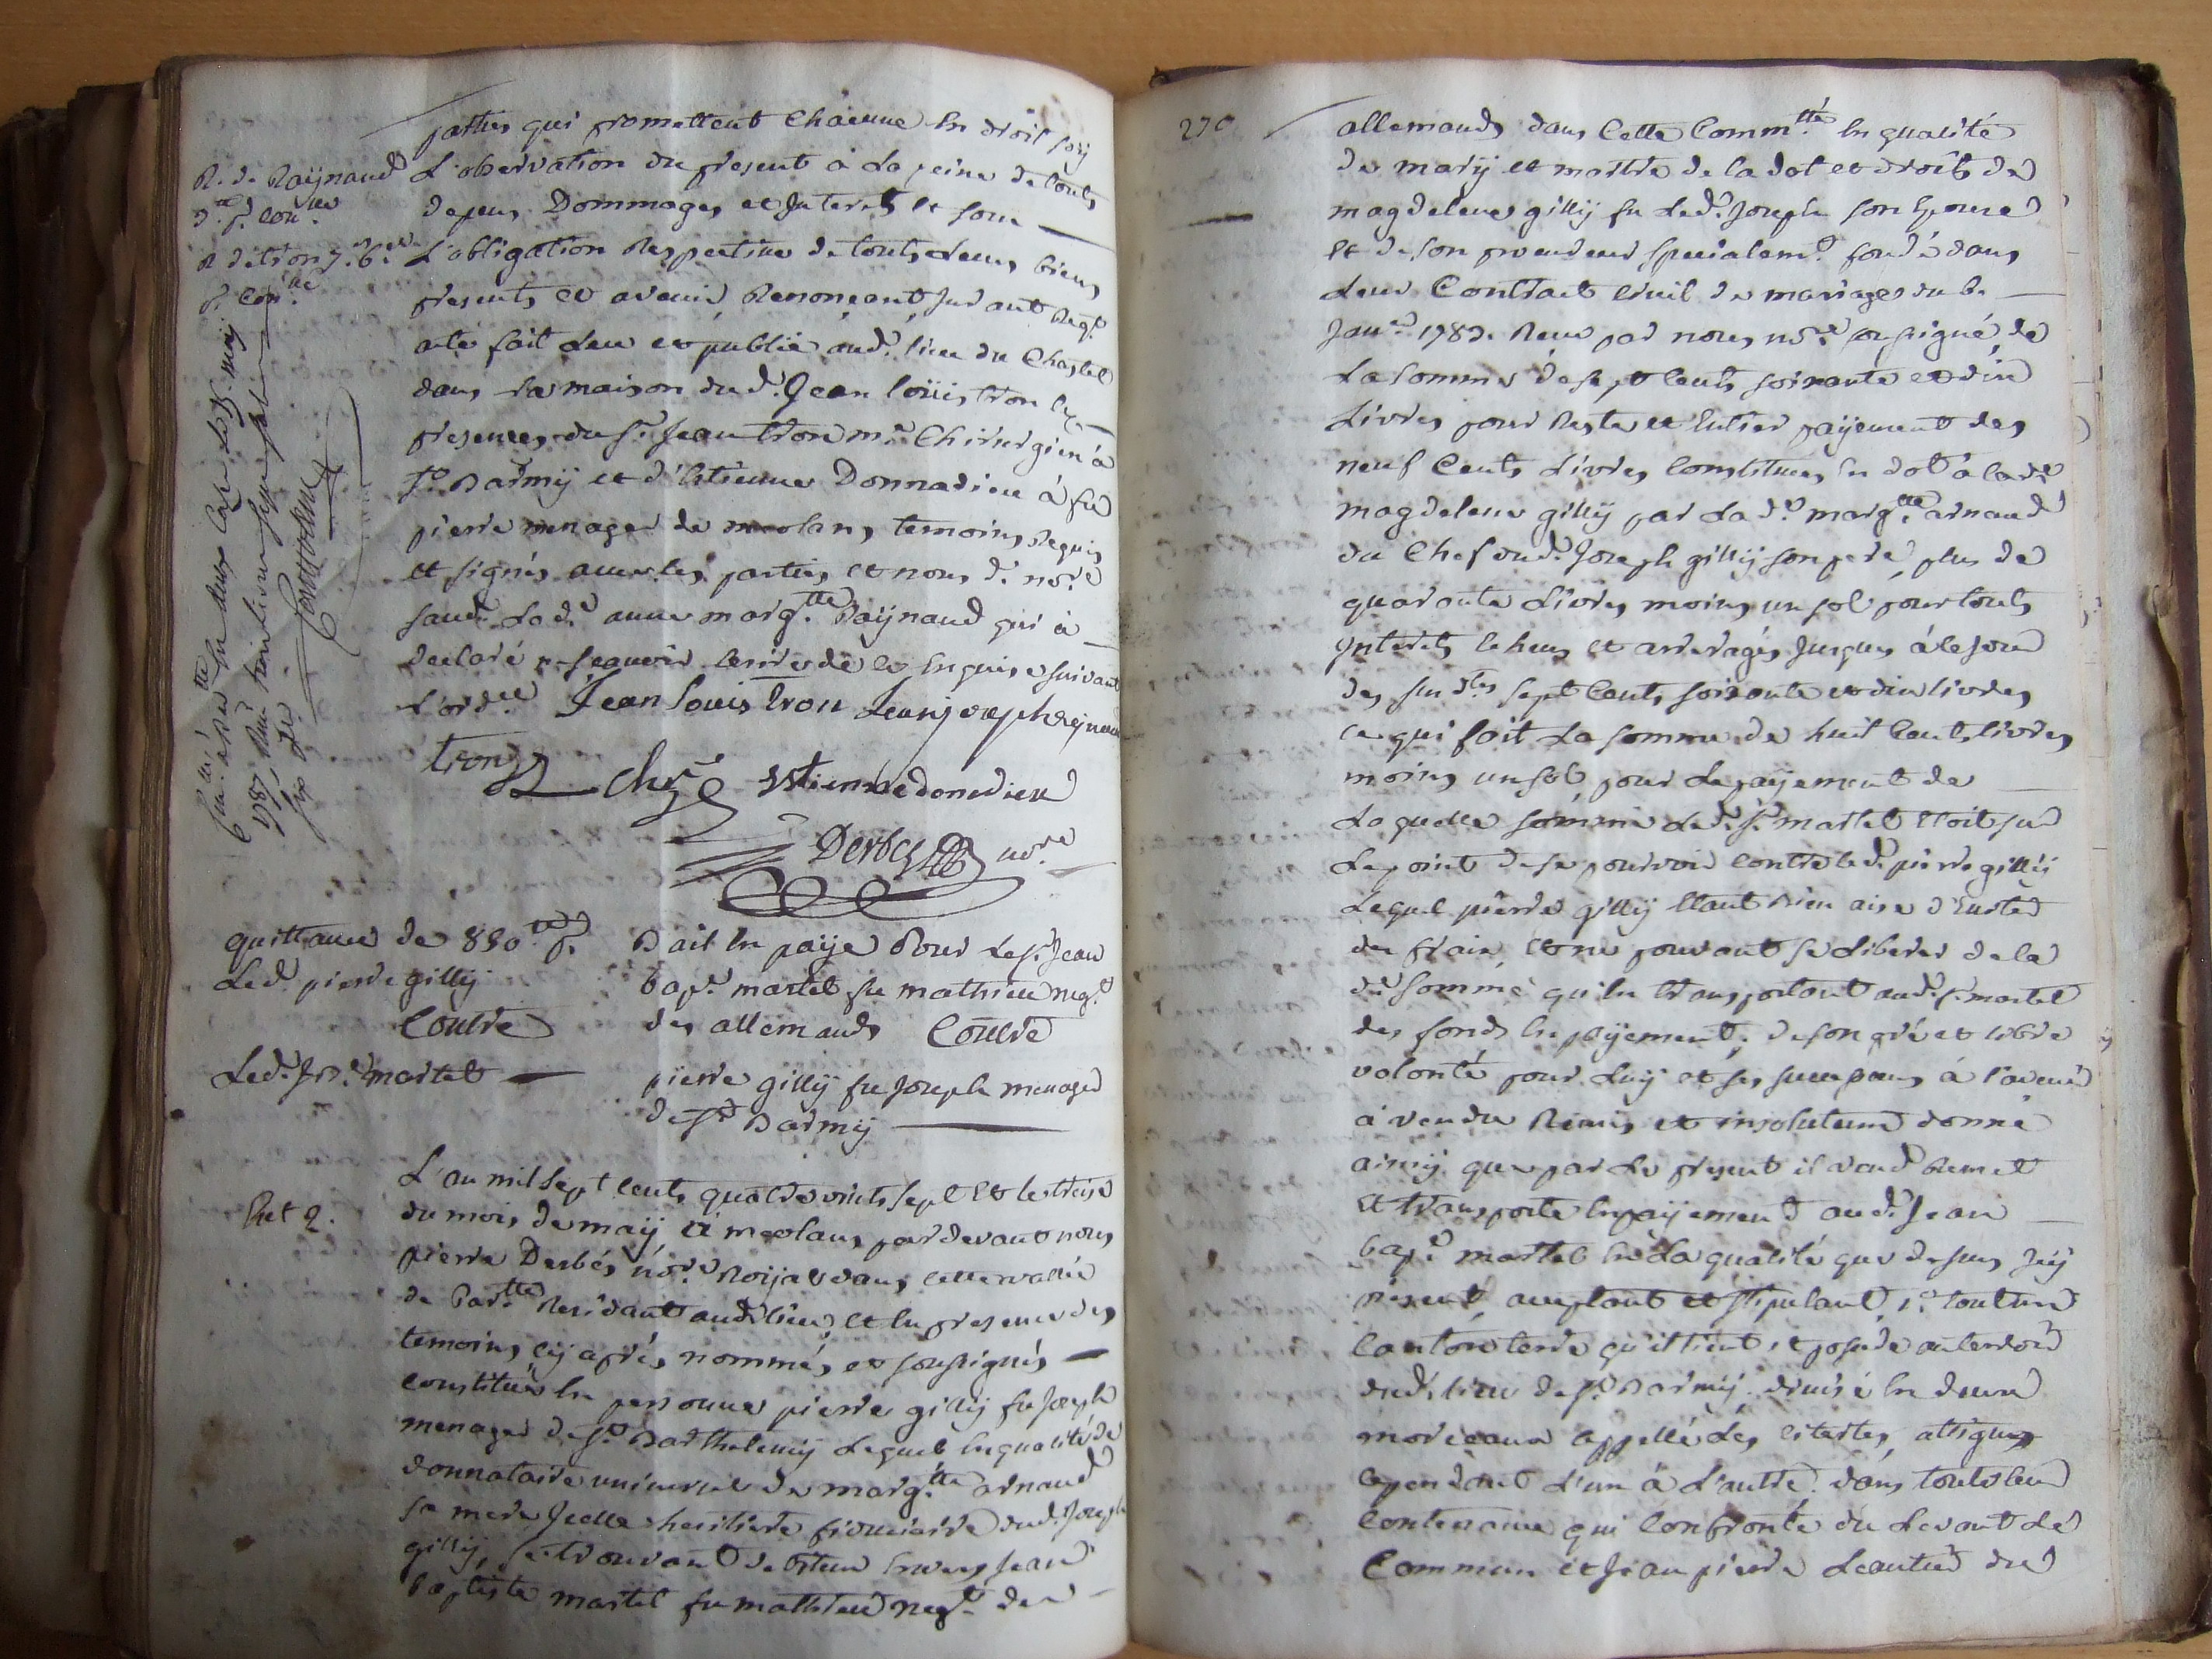 parties qui promettent chacune en droit soÿ
L'observation du present à La peine de touts
depens Dommages et Interets et sous
L'obligation Respective de touts Leurs biens
presents et avenir Renonçant Jurant Reqt
acte fait Leu et publié aud. lieu du Chastel
dans la maison dud. Jean loüis tron
presences du sr. Jean tron me. Chirurgien à
st. Barmÿ et d'Estienne Donnadieu à feu
pierre menager de meolans temoins Requis
et signés avec les parties et nous d. nore
sauf Lad.e anne margtte. Raÿnaud qui à
declaré ne scavoir ecrire de ce Enquise suivant
L'orde
Jean Louis tron Jean joseph reynaud
tron chr.
estienne donadieu
Derbes nore
R. de Raÿnaud
R de tron
quittance de 850
Led. pierre gillÿ
Contre
Led. Jn. martel
Bail en paÿe Pour Le sr. Jean
bapte. martel fu mathieu negt.
des allemands Contre
pierre gillÿ fu Joseph menager
de st. Barmÿ
Ext 2.
L'an mil sept cents quatre vints sept et le treise
du mois de maÿ à meolans pardevant nous
pierre Derbés nore. Roÿal dans cette vallée
de Bartte. Residant aud. lieu, et en presence des
temoins cÿ aprés nommés et soussignés
constitué En personne pierre gillÿ fu Joseph
menager de st. Barthelemÿ Lequel En qualité de
donnataire universel de margtte. arnaud
sa mere Icelle heritiere fiduciaire dud. Joseph
gillÿ, se trouvant debiteur Envers Jean
baptiste martel fu mathieu negt. des
270
allemands dans Cette Commtté. En qualité
de marÿ et maitre de la dot et droits de
magdelene gillÿ fu Led. Joseph son Epouse
et de son procureur specialemt. fondé dans
Leur Contract civil de mariage du 6.
Janer. 1783. Receu par nous nore soussigné, de
La somme de sept cents soixante et dix
Livres pour Reste et Entier païjement des
neuf Cents Livres Constituées En dot à lade
magdelene gillÿ par Lad.e margtte. arnaud
du Chef dud. Joseph gillÿ son pere, plus de
quarante Livres moins un sol pour touts
Interets echeus et arrerages Jusques à ce Jour
des susdtes sept Cents soixante et dix livres
ce qui fait La somme de huit Cents livres
moins un sol, pour Le païjement de
Laquelle somme Led. sr. martel Etoit sur
Le point de se pourvoir contre led. pierre gillÿ
Lequel pierre gillÿ Etant bien aise d'Eviter
des frais, et ne pouvant se Liberer de la
de somme qu'En transportant aud. sr. martel
des fonds En païjement, de son gré et libre
volonté pour Luÿ et ses successeurs à l'avenir
à vendu Remis et insolutum donné
ainsÿ que par Le present il vend Remet
et transporte En païjement aud. Jean
bapte. martel En La qualité que dessus Icÿ
present acceptant et stipulant, 1°. tout un
canton terre qu'il tient et possede au terroir
dud. lieu de st. Barmÿ divisé En deux
morceaux appellé Les citertes, attigus
cependant L'un à L'autre. dans toute leur
Contenance qui Confronte du Levant Le
Commun et Jean pierre Leautier du